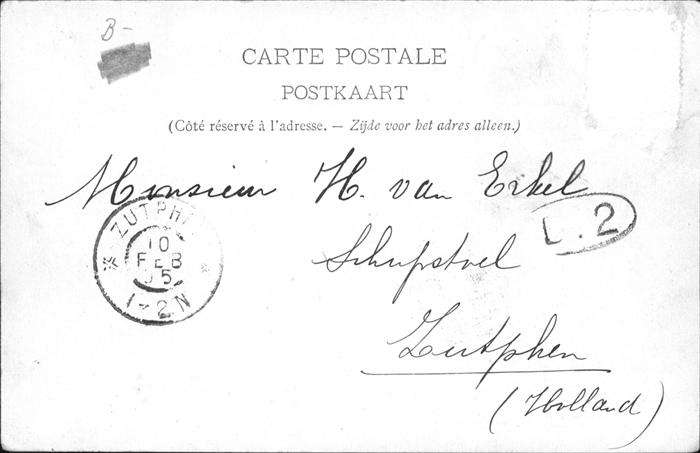 B-
CARTE POSTALE
POSTKAART
(Côté réservé à l'adresse. — Zijde voor het adres alleen.)
Monsieur H. van Erkel
L.2
ZUTPH
10
FEB
05
1-2N
Schupstoel
Zutphen
(Holland)